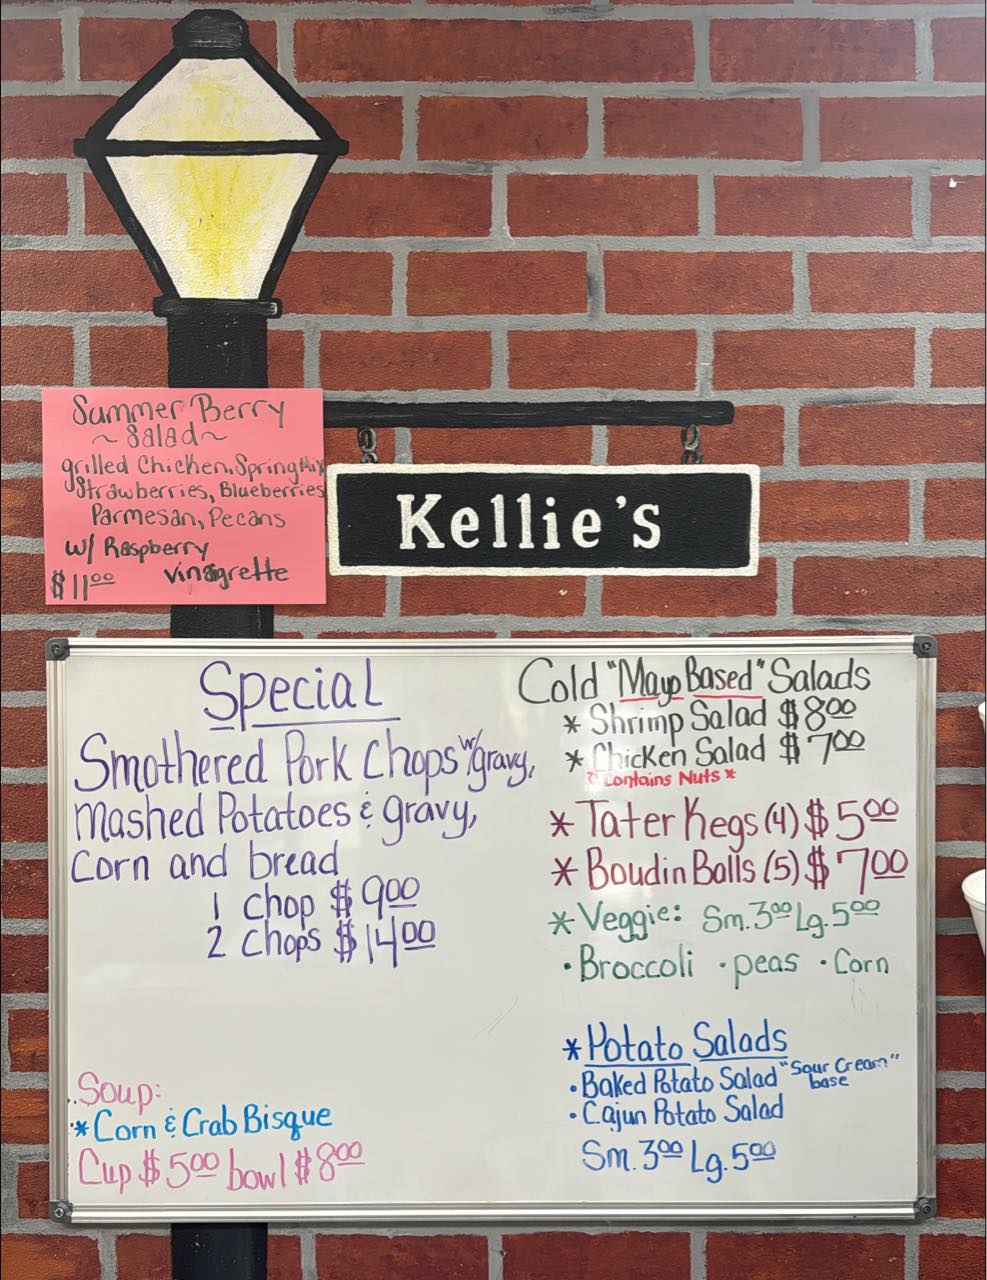 Summer Berry
~ Salad ~
grilled Chicken, Spring Mix
Strawberries, Blueberries
Parmesan, Pecans
w/ Raspberry
vinagrette
$11.00
Kellie's
Special
Smothered Pork Chops w/gravy,
Mashed Potatoes & gravy,
Corn and bread
1 chop $9.00
2 Chops $14.00
Soup:
* Corn & Crab Bisque
Cup $5.00 bowl $8.00
Cold "Mayo Based" Salads
* Shrimp Salad $8.00
* Chicken Salad $7.00
* Contains Nuts *
* Tater Kegs (4) $5.00
* Boudin Balls (5) $7.00
* Veggie: Sm. 3.00 Lg. 5.00
• Broccoli • peas • Corn
* Potato Salads
• Baked Potato Salad "Sour Cream" base
• Cajun Potato Salad
Sm. 3.00 Lg. 5.00